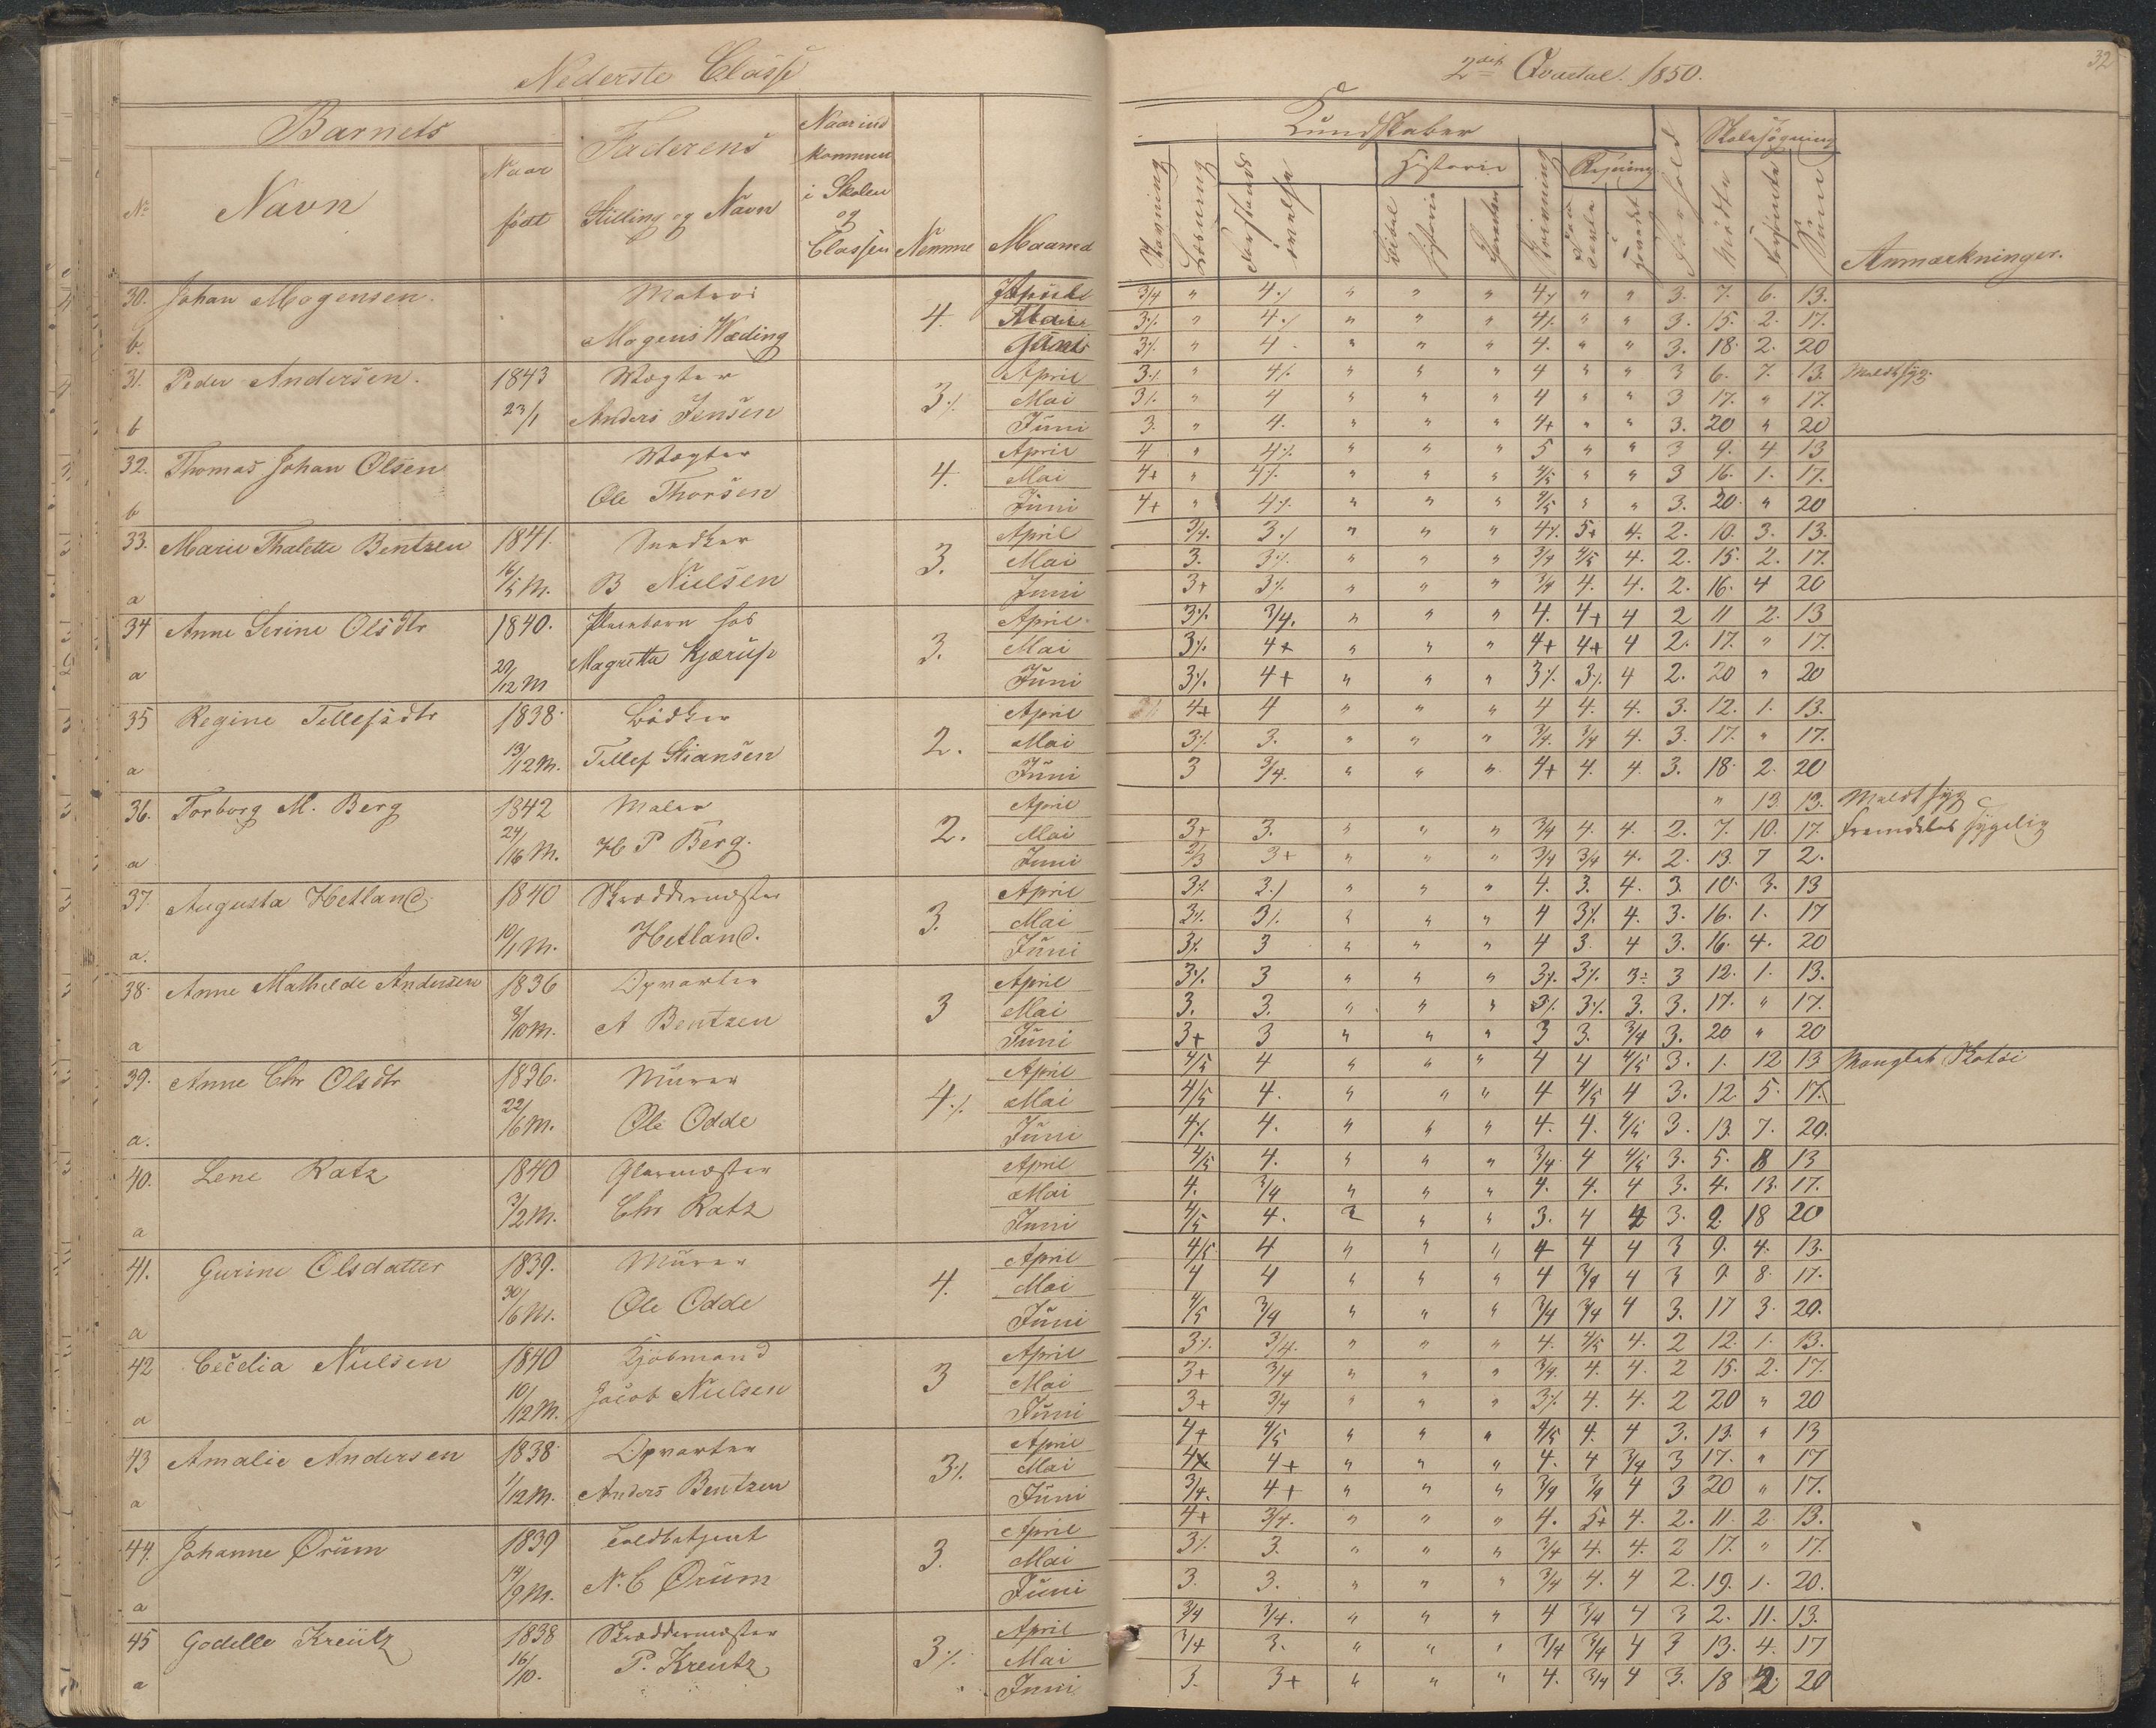 Nederste Classe
2det Qvartal. 1850.
32
Barnets
Faderens
Naar ind
kommen
i Skolen
og
Classen
Nemme
Maaned
No
Navn
Naar
født
Stilling og Navn
Kundskaber
Skolesøgning
Historie
Regning
Stavning
Læsning
Forstands
øvelse
Bibel
historie
Skrivning
Forhold
Mødte
Forsømte
Anmærkninger.
30. Johan Mogensen. Matros 4. April 3/4 " 4./. " " " 4./. " " 3. 7. 6. 13.
b. Mogens Wæding Mai 3./. " 4./. " " " 4./. " " 3. 15. 2. 17.
Juni 3./. " 4. " " " 4. " " 3. 18. 2. 20
31. Peder Andersen. 1843 Vægter 3./. April 3./. " 4./. " " " 4 " " 3 6. 7. 13. Meldt syg.
23/1 Anders Jensen Mai 3./. " 4 " " " 4 " " 3 17. " 17.
b Juni 3. " 4. " " " 4+ " " 3. 20 " 20
32. Thomas Johan Olsen Vægter 4. April 4 " 4./. " " " 5 " " 3 9. 4 13
Ole Thorsen Mai 4+ " 4./. " " " 4/5 " " 3 16. 1. 17.
b Juni 4+ " 4./. " " " 4/5 " " 3. 20. " 20
33. Marie Thalette Bentzen 1841. Snedker 3. April 3/4. 3./. " " " 4./. 5+ 4. 2. 10. 3. 13.
a 16/5 M. B Nielsen Mai 3. 3./. " " " 3/4 4/5 4. 2. 15. 2. 17.
Juni 3+ 3./. " " " 3/4 4. 4. 2. 16. 4 20
34 Anne Serine Olsdtr 1840. Pleiebarn hos 3. April 3./. 3/4. " " " 4. 4+ 4 2 11 2. 13
a 29/12 M Magretta Kjærup Mai 3./. 4+ " " " 4+ 4+ 4 2. 17. " 17.
Juni 3./. 4+ " " " 3./. 3./. 4 2. 20 " 20
35 Regine Tellefsdtr 1838. Bødker 2. April 4+ 4 " " " 4 4. 4. 3. 12. 1. 13.
a 13/12 M. Tellef Stiansen Mai 3./. 3. " " " 3/4. 3/4 4. 3. 17. " 17.
Juni 3 3/4. " " " 4+ 4. 4. 3. 18. 2. 20
36. Torborg M. Berg 1842 Maler 2. April " 13. 13. Meldt syg
a M. H P Berg. Mai 3+ 3. " " " 3/4 4. 4. 2. 7. 10. 17. fremdeles sygelig
Juni 2/3 3+ " " " 3/4 3/4 4. 2. 13. 7 2.
37. Augusta Hetland. 1840 Skræddermester 3. April 3./. 3./. " " " 4. 3. 4. 3. 10. 3. 13
a. 10/1 M. Hetland. Mai 3./. 3./. " " " 4 3./. 4. 3. 16. 1. 17
Juni 3./. 3 " " " 4 3. 4 3. 16. 4. 20
38. Anne Mathilde Andersen 1836 Opvarter 3 April 3./. 3 " " " 3./. 3./. 3÷ 3 12. 1. 13.
a 8/10 M. A Bentzen Mai 3. 3. " " " 3/. 3./. 3. 3. 17. " 17.
Juni 3+ 3 " " " 3 3. 3/4 3. 20 " 20
39. Anne Chr Olsdtr 1836. Murer 4./. April 4/5 4 " " " 4 4 4/5 3. 1. 12 13 Mangler Skotøi
a. 22/6 M. Ole Odde Mai 4/5 4. " " " 4 4/5 4 3. 12. 5. 17.
Juni 4./. 4. " " " 4. 4. 4/5 3. 13. 7. 20.
40. Lene Ratz 1840 Glarmester April 4/5 4. " " " 3/4. 4 4/5 3. 5. 8 13
a 3/2 M. Chr Ratz Mai 4. 3/4 " " " 4. 4. 4 3. 4. 13. 17.
Juni 4/5 4. " " " 3. 4 4 3. 2. 18 20
41. Gurine Olsdatter 1839. Murer 4. April 4/5 4 " " " 4 4 4 3 9. 4. 13.
a 30/6 M. Ole Odde Mai 4 4 " " " 4 3/4 4 3 9 8. 17.
Juni 4/5 3/4 " " " 3/4 3/4 4 3. 17 3. 20.
42 Cecelia Nielsen 1840 Kjøbmand 3 April 3./. 3/4. " " " 4. 4/5 4. 2 12. 1. 13.
a 10/12 M. Jacob Nielsen Mai 3+ 3/4 " " " 3/4. 4. 4. 2 15. 2. 17.
Juni 3+ 3/4 " " " 3./. 4. 4. 2 20 " 20
43 Amalie Andersen 1838 Opvarter 3./. April 4+ 4/5 " " " 4/5 4. 4 3. 13. " 13
a 1/12 M. Anders Bentzen Mai 4+ 4+ " " " 4. 4 3/4 3 17. " 17
Juni 3/4. 4+ " " " 3/4 3/4 4 3 20 " 17.
44. Johanne Ørum 1839 Toldbetjent 3. April 4+ 3/4. " " " 4. 5+ 4. 2. 11. 2 13.
a 14/9 M. N. C Ørum Mai 3./. 3. " " " 3/4 4. 4. 2 17. " 17.
Juni 3. 3. " " " 3/4 4. 4 2. 19. 1. 20.
45 Godelle Kreutz 1838 Skræddermester 3./. April 3/4 3/4. " " " 4 3/4 4 3 2. 11. 13.
a 16/10. P. Kreutz Mai 3/4 3. " " " 3/4 3/4 4 3 13. 4. 17
Juni 3. 3+ " " " 4. 3/4 4 3. 18 2. 20